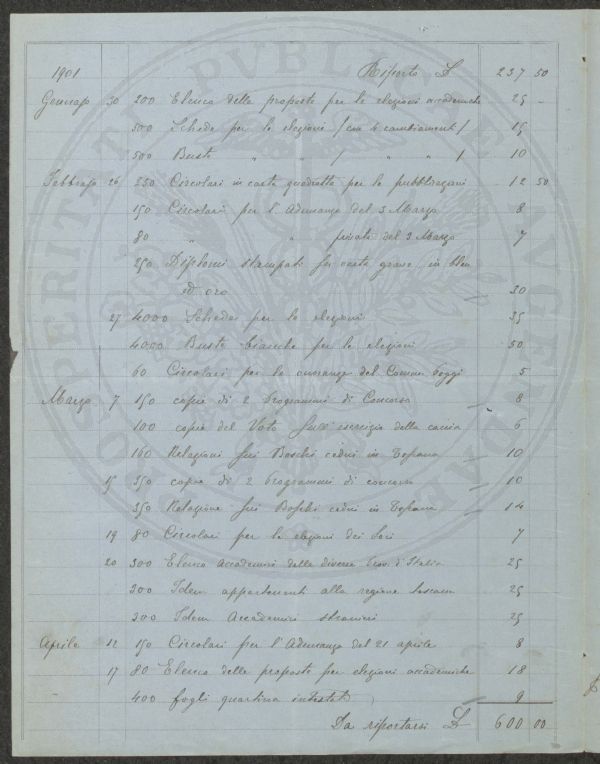 1901 Riporto £ 237 50
Gennajo 30 200 Elenco delle proposte per le elezioni accademiche 25 -
500 Schede per le elezioni / con 4 cambiamenti / 15
500 Buste " " / " " / 10
Febbrajo 26 250 Circolari in carta quadrotta per le pubblicazioni 12 50
150 Circolari per l'Adunanza del 3 Marzo 8
80 " " privata del 3 Marzo 7
250 Diplomi stampati su carta grave in bleu
ed oro 30
27 4000 Schede per le elezioni 35
4000 Buste bianche per le elezioni 50
60 Circolari per le onoranze del Comm. 5
Marzo 7 150 copie di 2 Programmi di Concorso 8
100 copie del Voto sull'esercizio della caccia 6
160 Relazioni sui Boschi cedui in Toscana 10
15 350 copie di 2 Programmi di concorso 10
350 Relazione sui Boschi cedui in Toscana 14
19 80 Circolari per le elezioni dei Soci 7
20 300 Elenco Accademici delle diverse Prov. d'Italia 25
300 Idem appartenenti alla regione toscana 25
300 Idem Accademici stranieri 25
Aprile 12 150 Circolari per l'Adunanza del 21 aprile 8
17 80 Elenco delle proposte per elezioni accademiche 18
400 fogli quartina intestati 9
Da riportarsi £ 600 00
PROSPERITATI PVBLICAE AVGENDAE